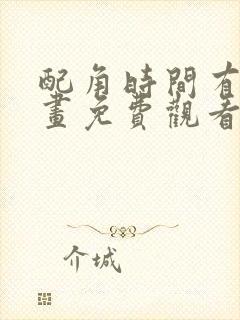 配角時間有
畫免費觀看
介城